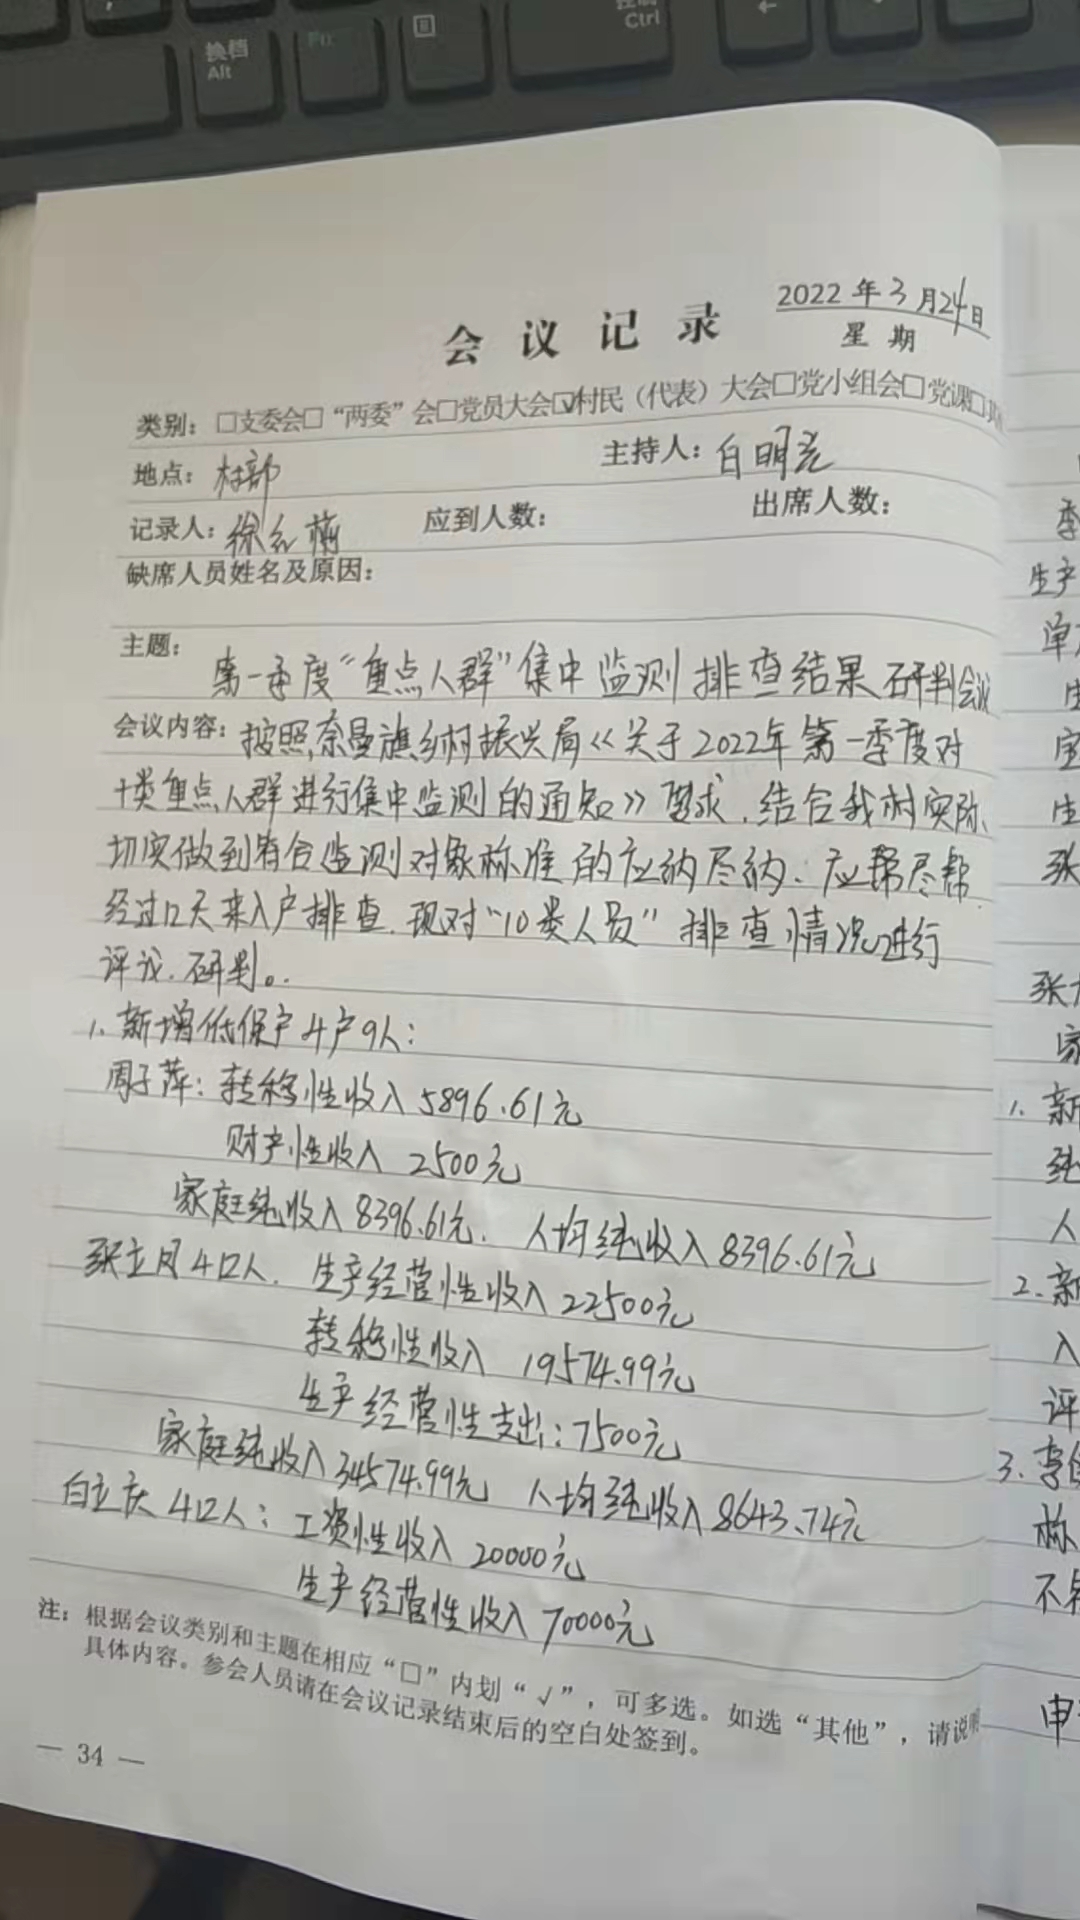 换档
Alt
Fn
Ctrl
会议记录
2022年3月24日
星期
类别：□支委会□“两委”会□党员大会☑村民（代表）大会□党小组会□党课□
地点：村部 主持人：白明光
记录人：徐 应到人数： 出席人数：
缺席人员姓名及原因：
主题：第一季度“重点人群”集中监测排查结果研判会议
会议内容：按照，奈曼旗乡村振兴局《关于2022年第一季度对
十类重点人群进行集中监测的通知》要求，结合我村实际、
切实做到符合监测对象标准的应纳尽纳、应帮尽帮
经过12天来入户排查，现对“10类人员”排查情况进行
评议、研判。
1、新增低保户4户9人：
周子萍：转移性收入5896.61元
财产性收入 2500元
家庭纯收入8396.61元、人均纯收入8396.61元
张立风4口人、生产经营性收入22500元
转移性收入 19574.99元
生产经营性支出：7500元
家庭纯收入34574.99元 人均纯收入8643.74元
白立庆4口人：工资性收入20000元
生产经营性收入70000元
注：根据会议类别和主题在相应“□”内划“√”，可多选。如选“其他”，请说明
具体内容。参会人员请在会议记录结束后的空白处签到。
— 34 —
季
生产
单
生
宝
生
张
张
家
1、新
纯
人
2、新
入
评
3、李
标
不
申